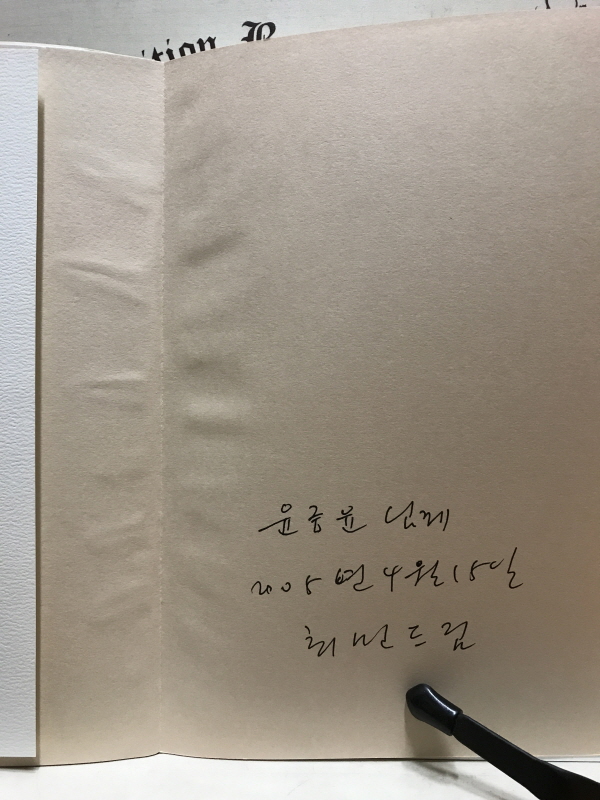 ition
윤중윤 님께
2005년 4월 15일
최민 드림